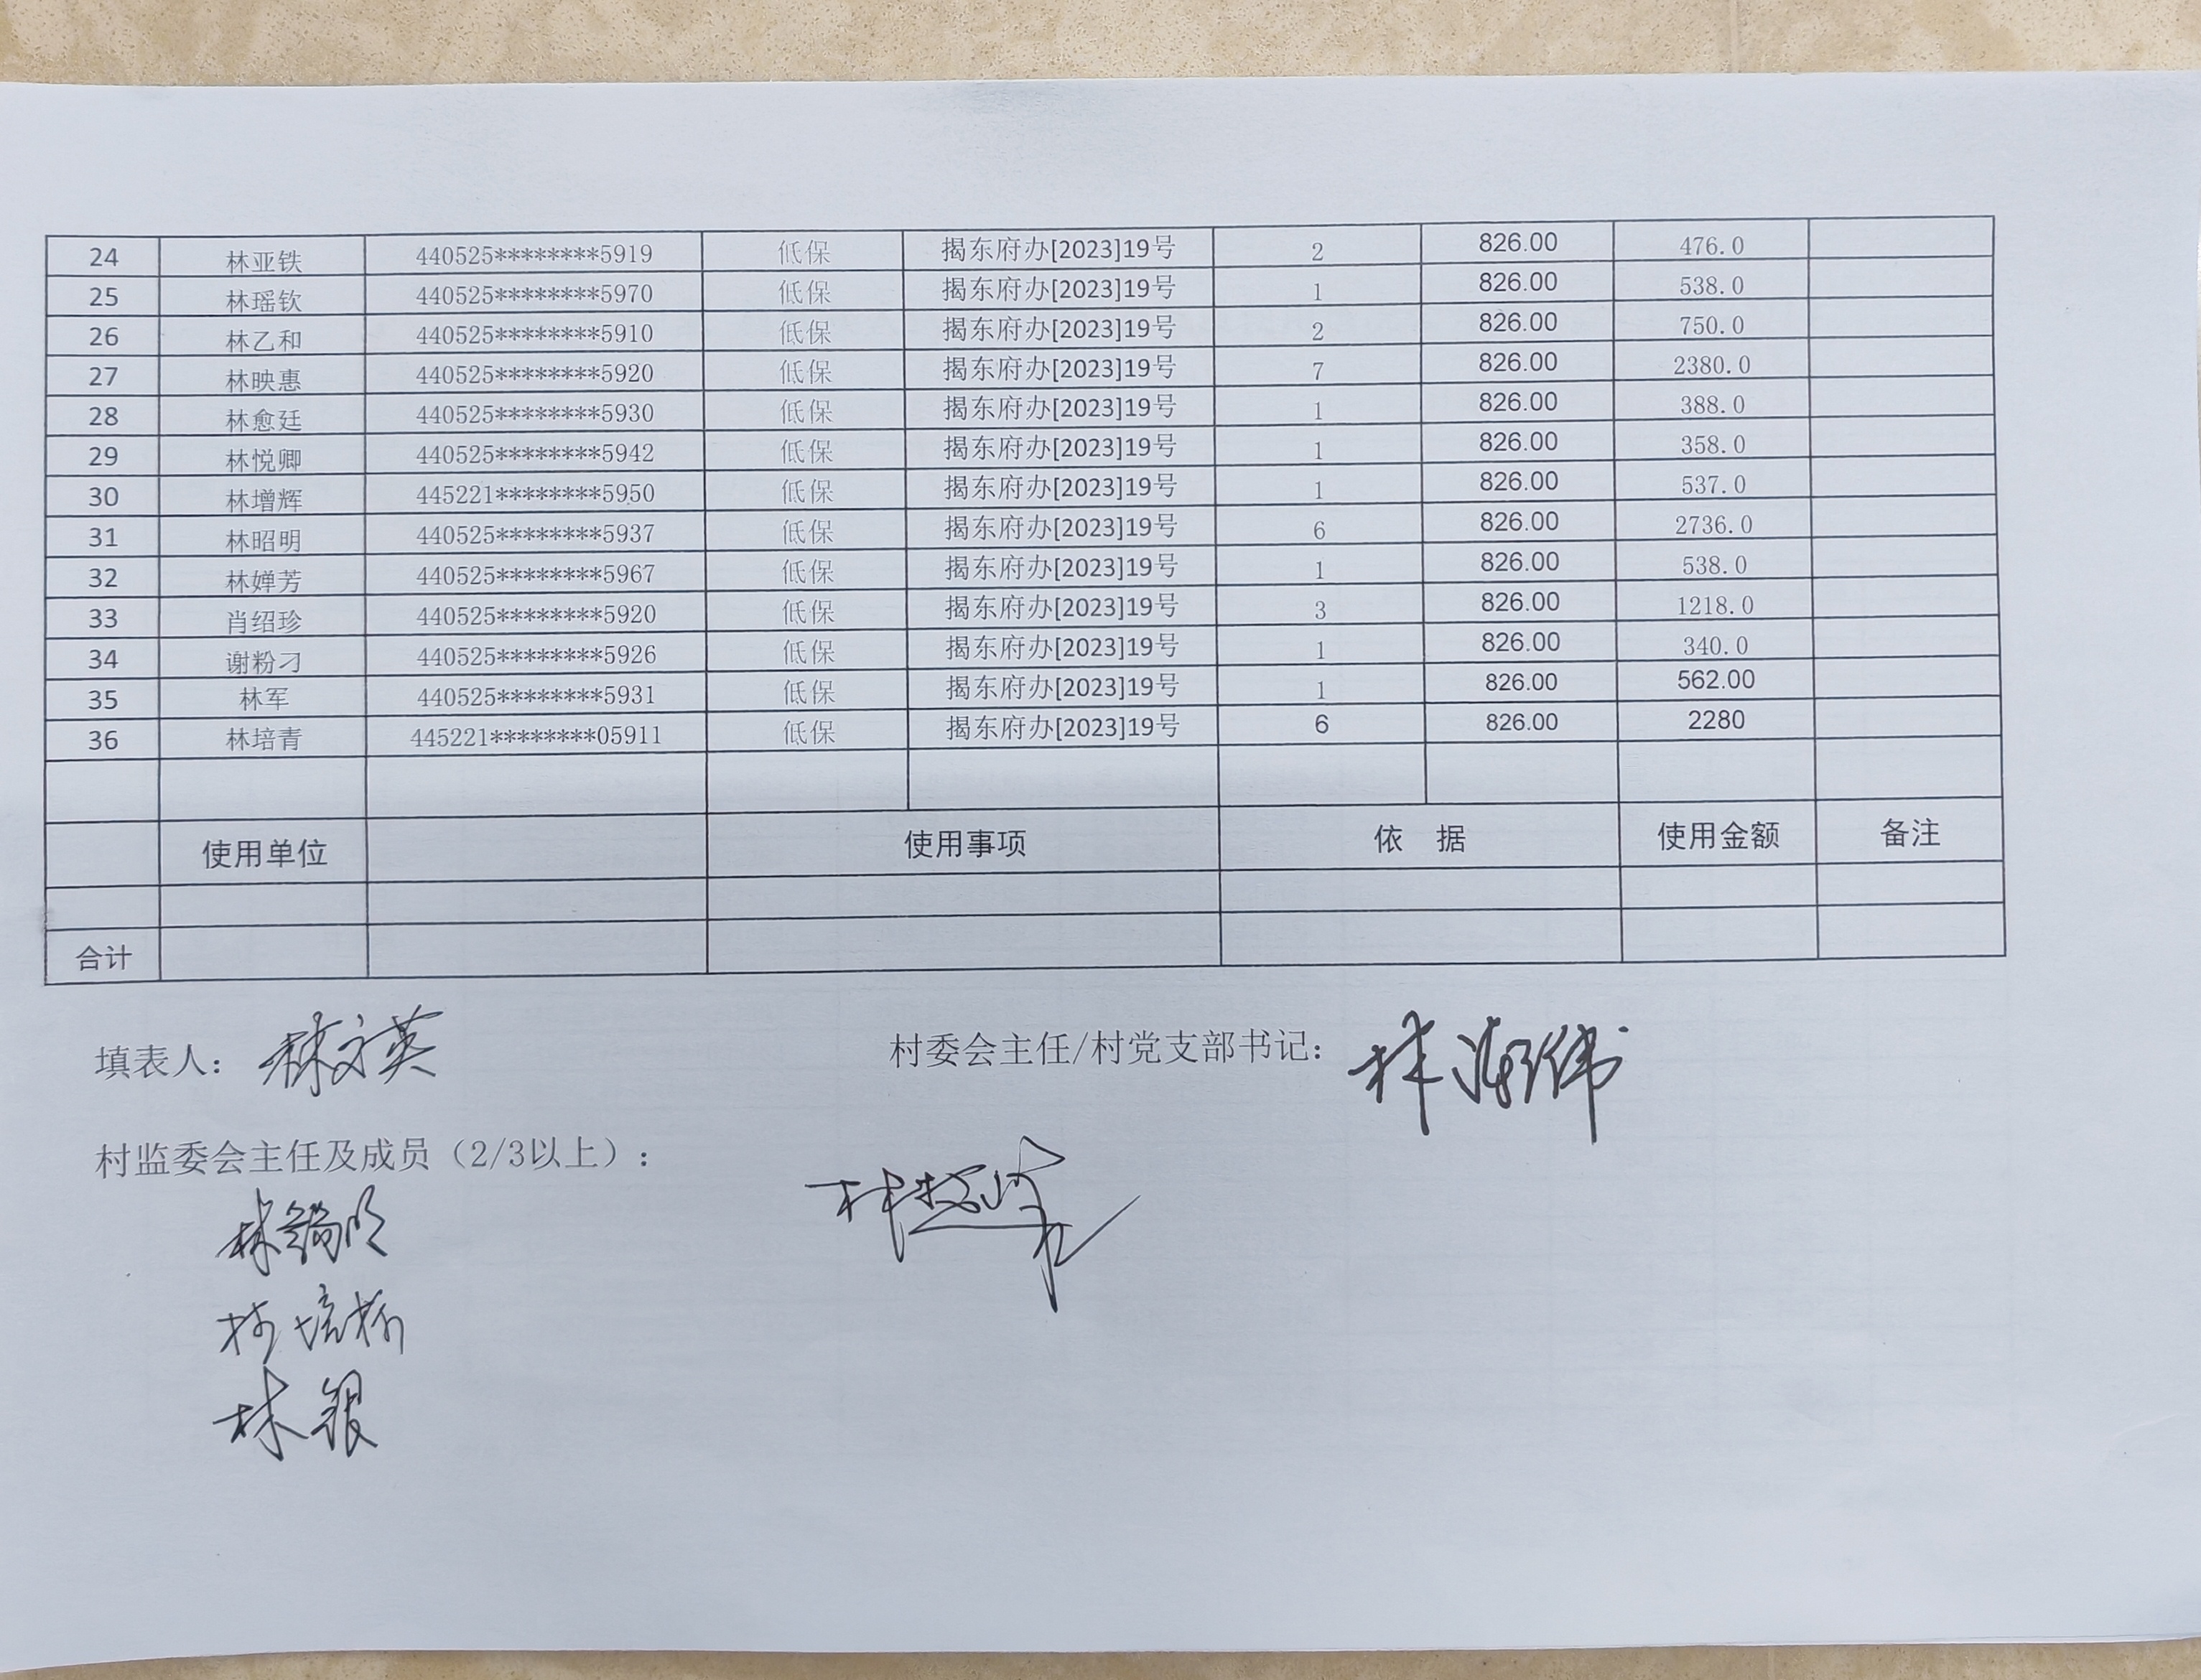 24 林亚铁 440525********5919 低保 揭东府办[2023]19号 2 826.00 476.0
25 林瑶钦 440525********5970 低保 揭东府办[2023]19号 1 826.00 538.0
26 林乙和 440525********5910 低保 揭东府办[2023]19号 2 826.00 750.0
27 林映惠 440525********5920 低保 揭东府办[2023]19号 7 826.00 2380.0
28 林愈廷 440525********5930 低保 揭东府办[2023]19号 1 826.00 388.0
29 林悦卿 440525********5942 低保 揭东府办[2023]19号 1 826.00 358.0
30 林增辉 445221********5950 低保 揭东府办[2023]19号 1 826.00 537.0
31 林昭明 440525********5937 低保 揭东府办[2023]19号 6 826.00 2736.0
32 林婵芳 440525********5967 低保 揭东府办[2023]19号 1 826.00 538.0
33 肖绍珍 440525********5920 低保 揭东府办[2023]19号 3 826.00 1218.0
34 谢粉刁 440525********5926 低保 揭东府办[2023]19号 1 826.00 340.0
35 林军 440525********5931 低保 揭东府办[2023]19号 1 826.00 562.00
36 林培青 445221********05911 低保 揭东府办[2023]19号 6 826.00 2280
使用单位 使用事项 依 据 使用金额 备注
合计
填表人：林文英 村委会主任/村党支部书记：
村监委会主任及成员（2/3以上）：
林银